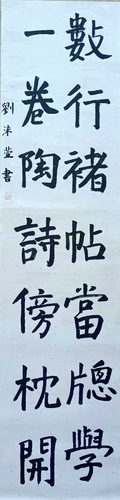 數行褚帖當牕學
一卷陶詩傍枕開
劉沬蓥書